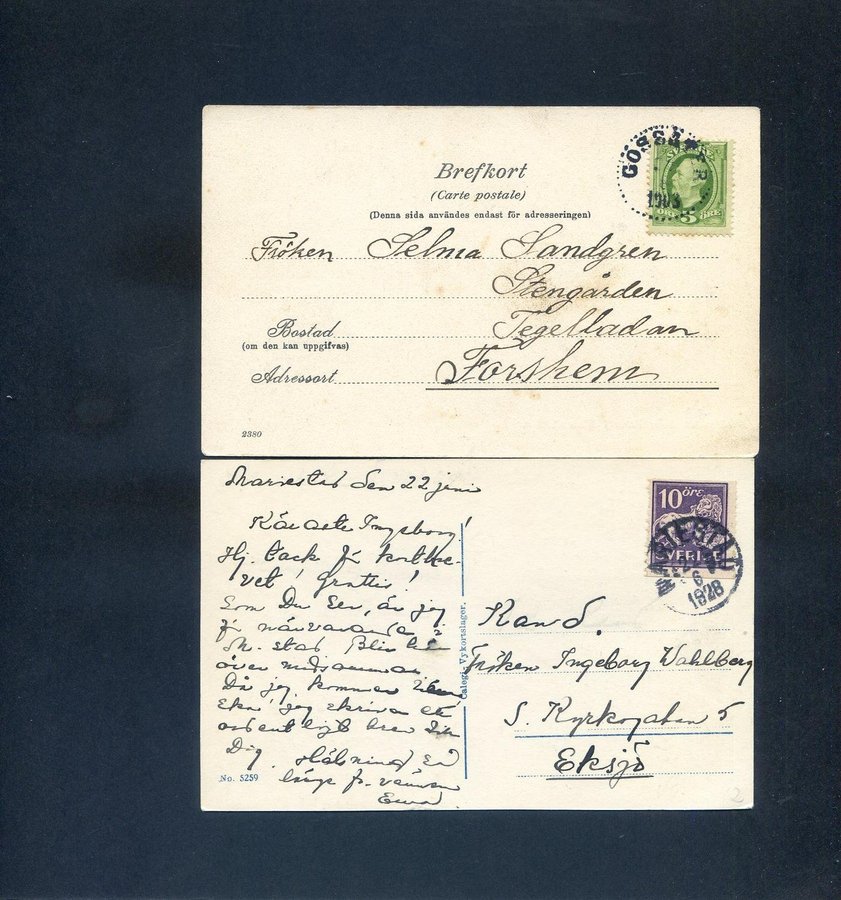 Brefkort
(Carte postale)
(Denna sida användes endast för adresseringen)
GÖSSÄTER
1903
SVERIGE
ÖRE 5 ÖRE
Fröken Selma Sandgren
Stengården
Bostad Tegelladan
(om den kan uppgifvas)
Adressort Forshem
2380
Mariestad den 22 juni
Käraste Ingeborg!
Hj. tack för kortbre-
vet! Grattis!
Som Du ser, är jag
för närvarande i
M.stad. Blir här
över midsommar
Då jag kommer
Eka' jag skriva ett
ordentligt brev till
Dig. Hälsning så
länge fr. vännen
No. 5259
Calegi. Vykortslager.
10 öre
SVERIGE
MARIESTAD
6
1928
Kand.
Fröken Ingeborg Wahlberg
S. Kyrkogatan 5
Eksjö
2